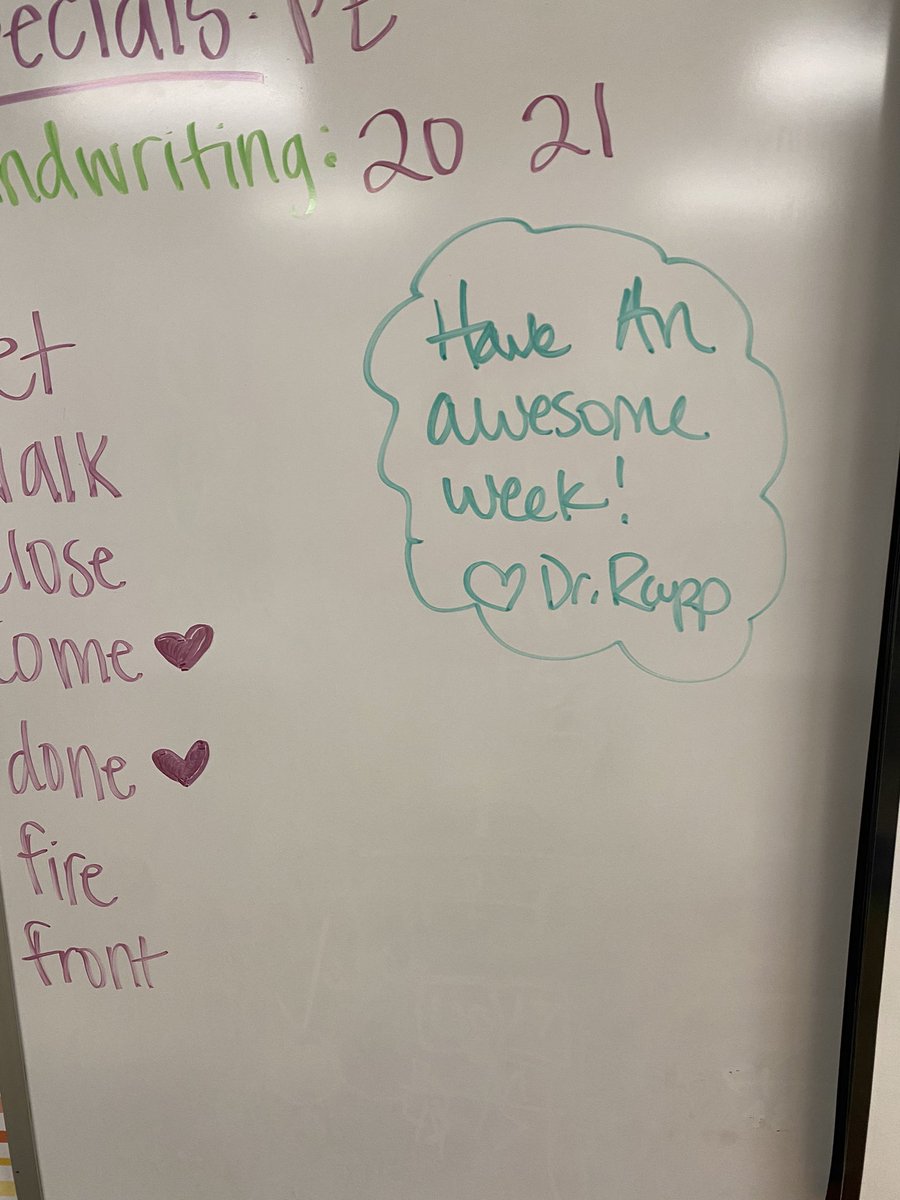 ecials: PE
ndwriting: 20 21
et
alk
close
come
done
fire
front
Have An
awesome
week!
♡ Dr. Rapp